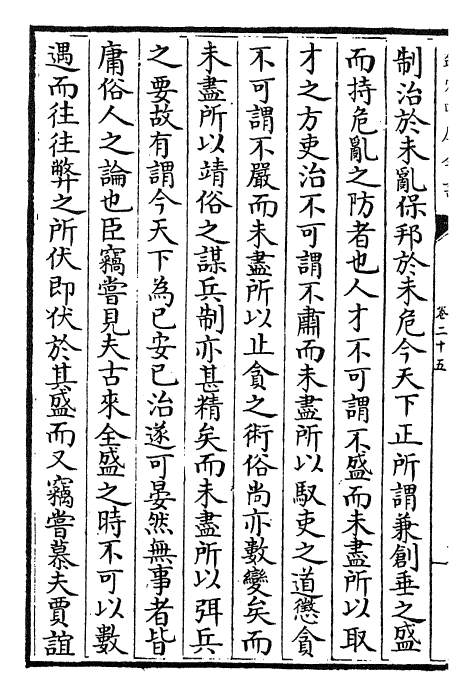 制治於未亂保邦於未危今天下正所謂兼創垂之盛
而持危亂之防者也人才不可謂不盛而未盡所以取
才之方吏治不可謂不肅而未盡所以馭吏之道懲貪
不可謂不嚴而未盡所以止貪之術俗尚亦數變矣而
未盡所以靖俗之謀兵制亦甚精矣而未盡所以弭兵
之要故有謂今天下為已安已治遂可晏然無事者皆
庸俗人之論也臣竊嘗見夫古來全盛之時不可以數
遇而往往弊之所伏即伏於其盛而又竊嘗慕夫賈誼
卷二十五